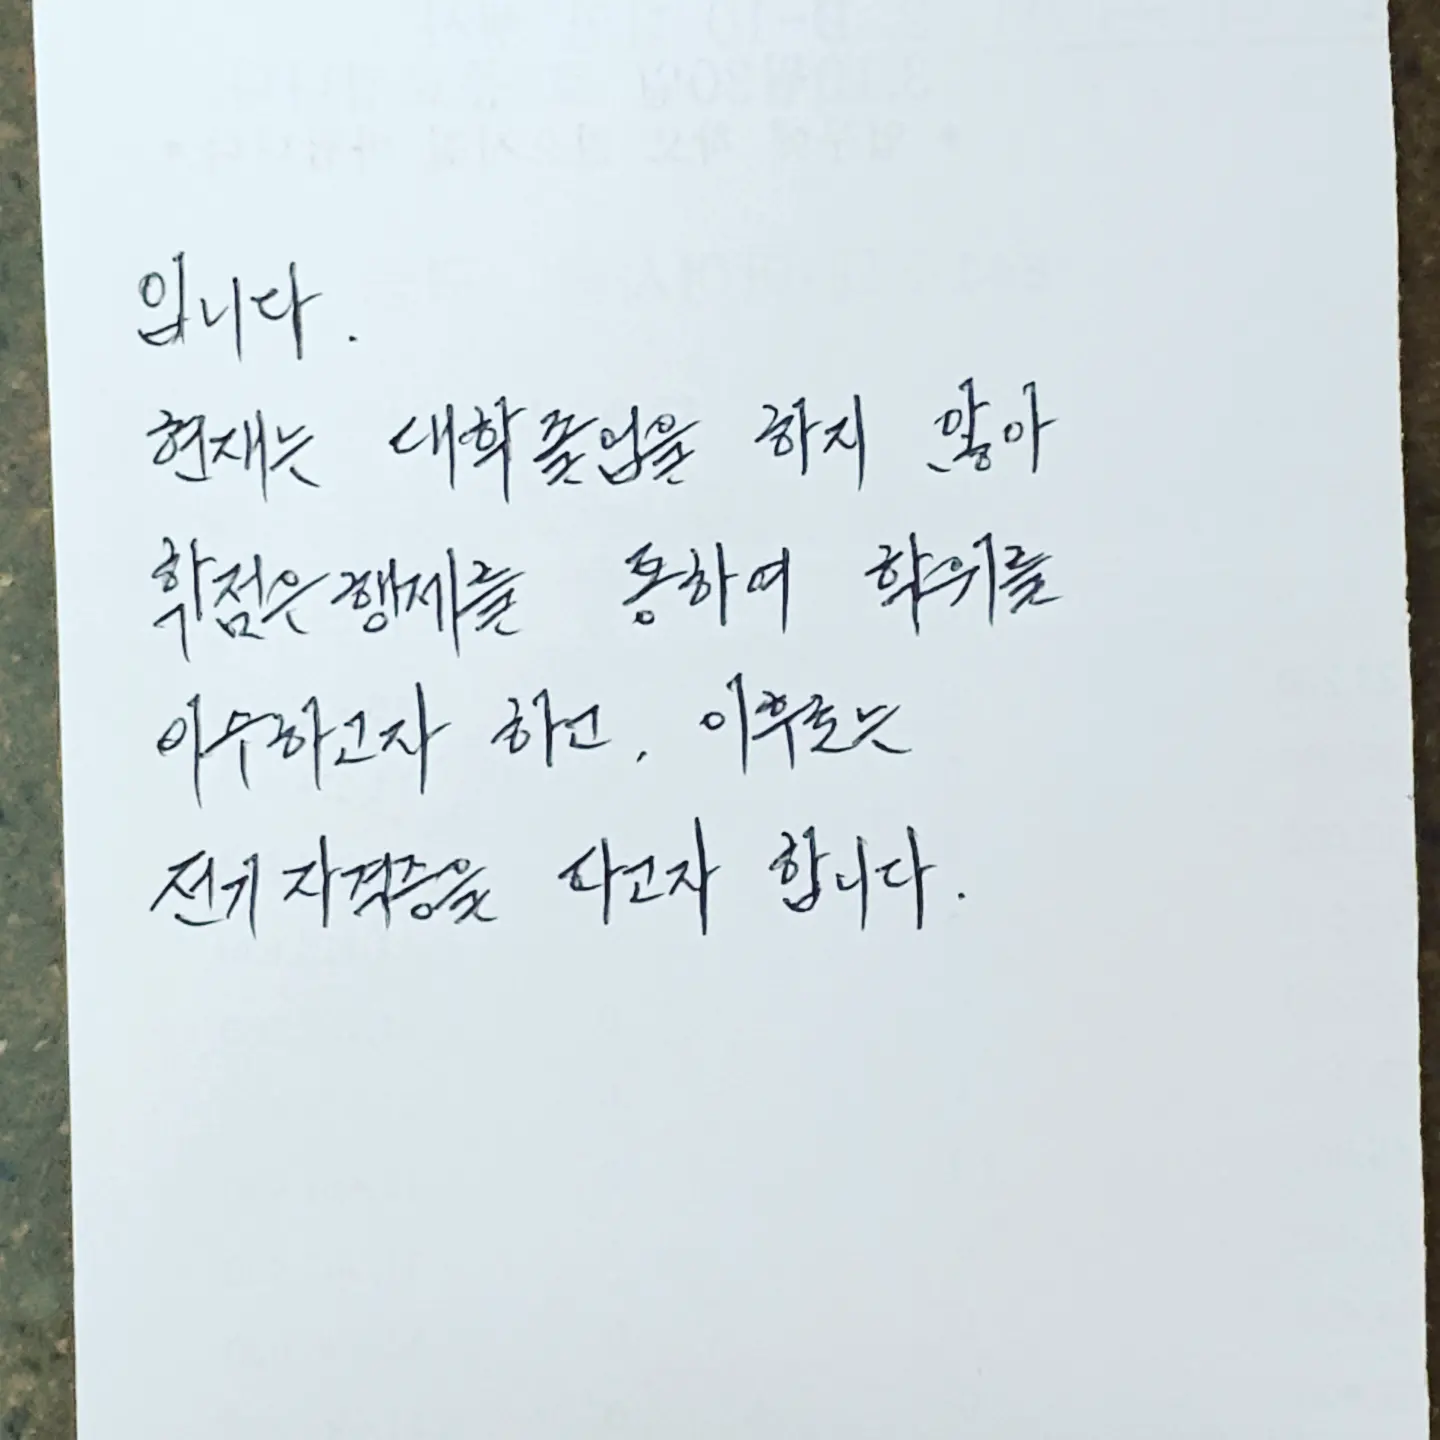 입니다.
현재는 대학졸업을 하지 않아
학점은행제를 통하여 학위를
이수하고자 하고, 이후로는
전기자격증을 따고자 합니다.